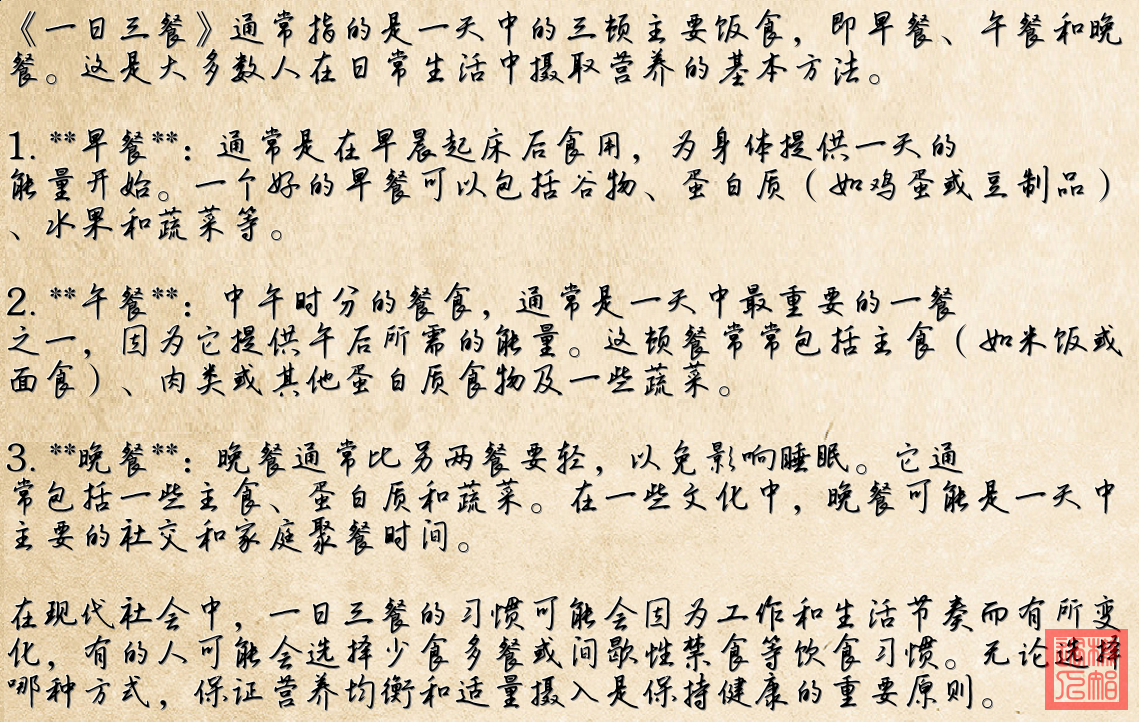 《一日三餐》通常指的是一天中的三顿主要饭食，即早餐、午餐和晚
餐。这是大多数人在日常生活中摄取营养的基本方法。
1. **早餐**：通常是在早晨起床后食用，为身体提供一天的
能量开始。一个好的早餐可以包括谷物、蛋白质（如鸡蛋或豆制品）
、水果和蔬菜等。
2. **午餐**：中午时分的餐食，通常是一天中最重要的一餐
之一，因为它提供午后所需的能量。这顿餐常常包括主食（如米饭或
面食）、肉类或其他蛋白质食物及一些蔬菜。
3. **晚餐**：晚餐通常比另两餐要轻，以免影响睡眠。它通
常包括一些主食、蛋白质和蔬菜。在一些文化中，晚餐可能是一天中
主要的社交和家庭聚餐时间。
在现代社会中，一日三餐的习惯可能会因为工作和生活节奏而有所变
化，有的人可能会选择少食多餐或间歇性禁食等饮食习惯。无论选择
哪种方式，保证营养均衡和适量摄入是保持健康的重要原则。